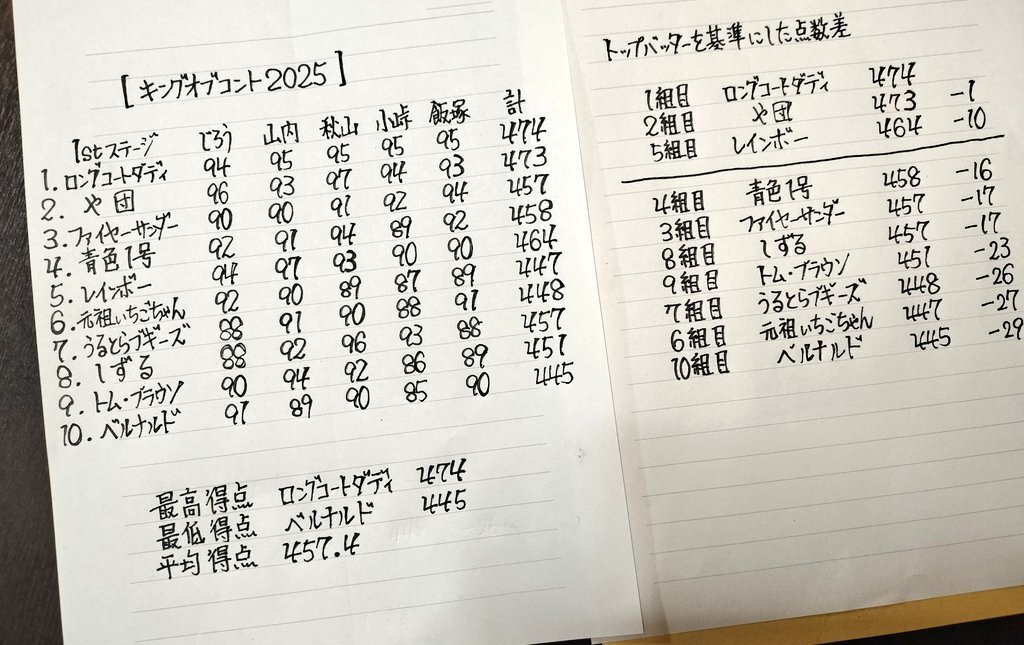 [キングオブコント2025]
1stステージ じろう 山内 秋山 小峠 飯塚 計
1. ロングコートダディ 94 95 95 95 95 474
2. や団 96 93 97 94 93 473
3. ファイヤーサンダー 90 90 91 92 94 457
4. 青色1号 92 91 94 89 92 458
5. レインボー 94 97 93 90 90 464
6. 元祖いちごちゃん 92 90 89 87 89 447
7. うるとらブギーズ 88 91 90 88 91 448
8. しずる 88 92 96 93 88 457
9. トム・ブラウン 90 94 92 86 89 451
10. ベルナルド 91 89 90 85 90 445
最高得点 ロングコートダディ 474
最低得点 ベルナルド 445
平均得点 457.4
トップバッターを基準にした点数差
1組目 ロングコートダディ 474
2組目 や団 473 -1
5組目 レインボー 464 -10
4組目 青色1号 458 -16
3組目 ファイヤーサンダー 457 -17
8組目 しずる 457 -17
9組目 トム・ブラウン 451 -23
7組目 うるとらブギーズ 448 -26
6組目 元祖いちごちゃん 447 -27
10組目 ベルナルド 445 -29